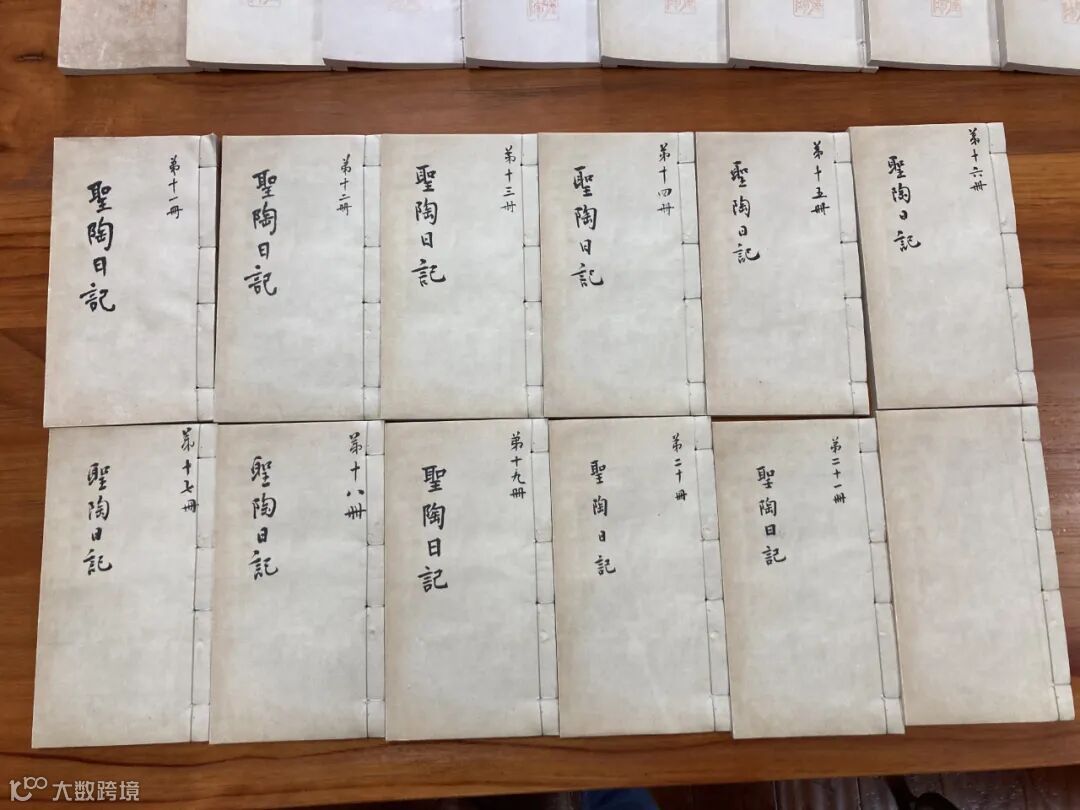 第十一冊
聖陶日記
第十二冊
聖陶日記
第十三冊
聖陶日記
第十四冊
聖陶日記
第十五冊
聖陶日記
第十六冊
聖陶日記
第十七冊
聖陶日記
第十八冊
聖陶日記
第十九冊
聖陶日記
第二十冊
聖陶日記
第二十一冊
聖陶日記
大数跨境